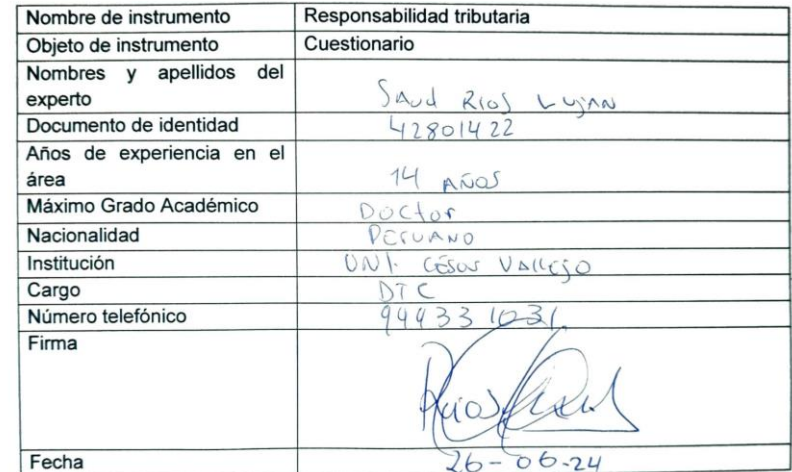 Nombre de instrumento Responsabilidad tributaria
Objeto de instrumento Cuestionario
Nombres y apellidos del
experto Saud Rios Lujan
Documento de identidad 42801422
Años de experiencia en el
área 14 AÑOS
Máximo Grado Académico Doctor
Nacionalidad Peruano
Institución UNI. César Vallejo
Cargo DTC
Número telefónico 944331031
Firma
Fecha 26-06-24